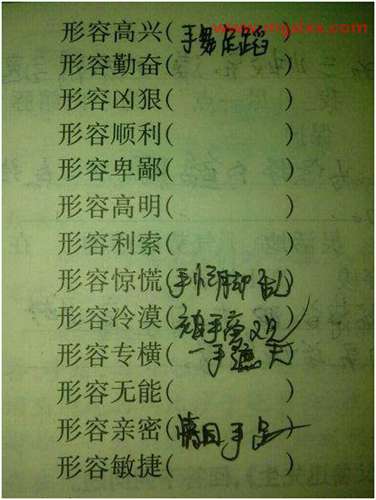 www.mgdxx.com
形容高兴(手舞足蹈)
形容勤奋( )
形容凶狠( )
形容顺利( )
形容卑鄙( )
形容高明( )
形容利索( )
形容惊慌(手忙脚乱)
形容冷漠(袖手旁观)
形容专横(一手遮天)
形容无能( )
形容亲密(情同手足)
形容敏捷( )